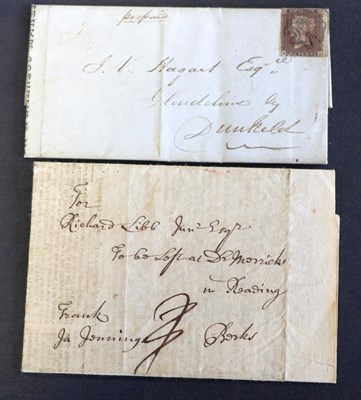 prepaid
J. V. Hagart Esqre
Glendelvine by
Dunkeld
For
Richard Libb Junr Esqr
To be left at Dr Merricks
in Reading
Frank
Ja Jennings
Berks